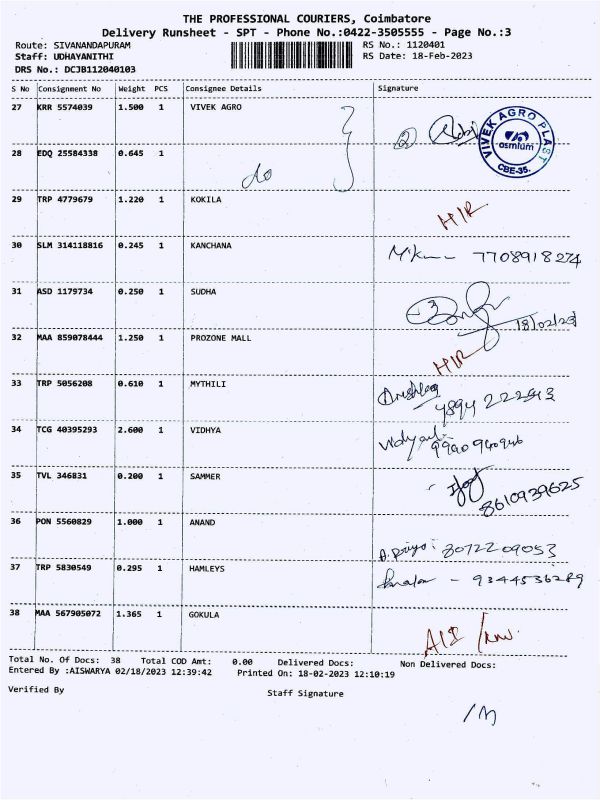 THE PROFESSIONAL COURIERS, Coimbatore
Delivery Runsheet - SPT - Phone No.:0422-3505555 - Page No.:3
Route: SIVANANDAPURAM RS No.: 1120401
Staff: UDHAYANITHI RS Date: 18-Feb-2023
DRS No.: DCJB112040103
S No Consignment No Weight PCS Consignee Details Signature
27 KRR 5574039 1.500 1 VIVEK AGRO
VIVEK AGRO PLAST
osmium
CBE-35.
28 EDQ 25584338 0.645 1 do
29 TRP 4779679 1.220 1 KOKILA H/R
30 SLM 314118816 0.245 1 KANCHANA 7708918274
31 ASD 1179734 0.250 1 SUDHA 18/02/23
32 MAA 859078444 1.250 1 PROZONE MALL H/R
33 TRP 5056208 0.610 1 MYTHILI
34 TCG 40395293 2.600 1 VIDHYA
35 TVL 346831 0.200 1 SAMMER 8610939625
36 PON 5560829 1.000 1 ANAND A. Priya : 8072209053
37 TRP 5830549 0.295 1 HAMLEYS - 9344536289
38 MAA 567905072 1.365 1 GOKULA
Total No. Of Docs: 38 Total COD Amt: 0.00 Delivered Docs: Non Delivered Docs:
Entered By :AISWARYA 02/18/2023 12:39:42 Printed On: 18-02-2023 12:10:19
Verified By Staff Signature